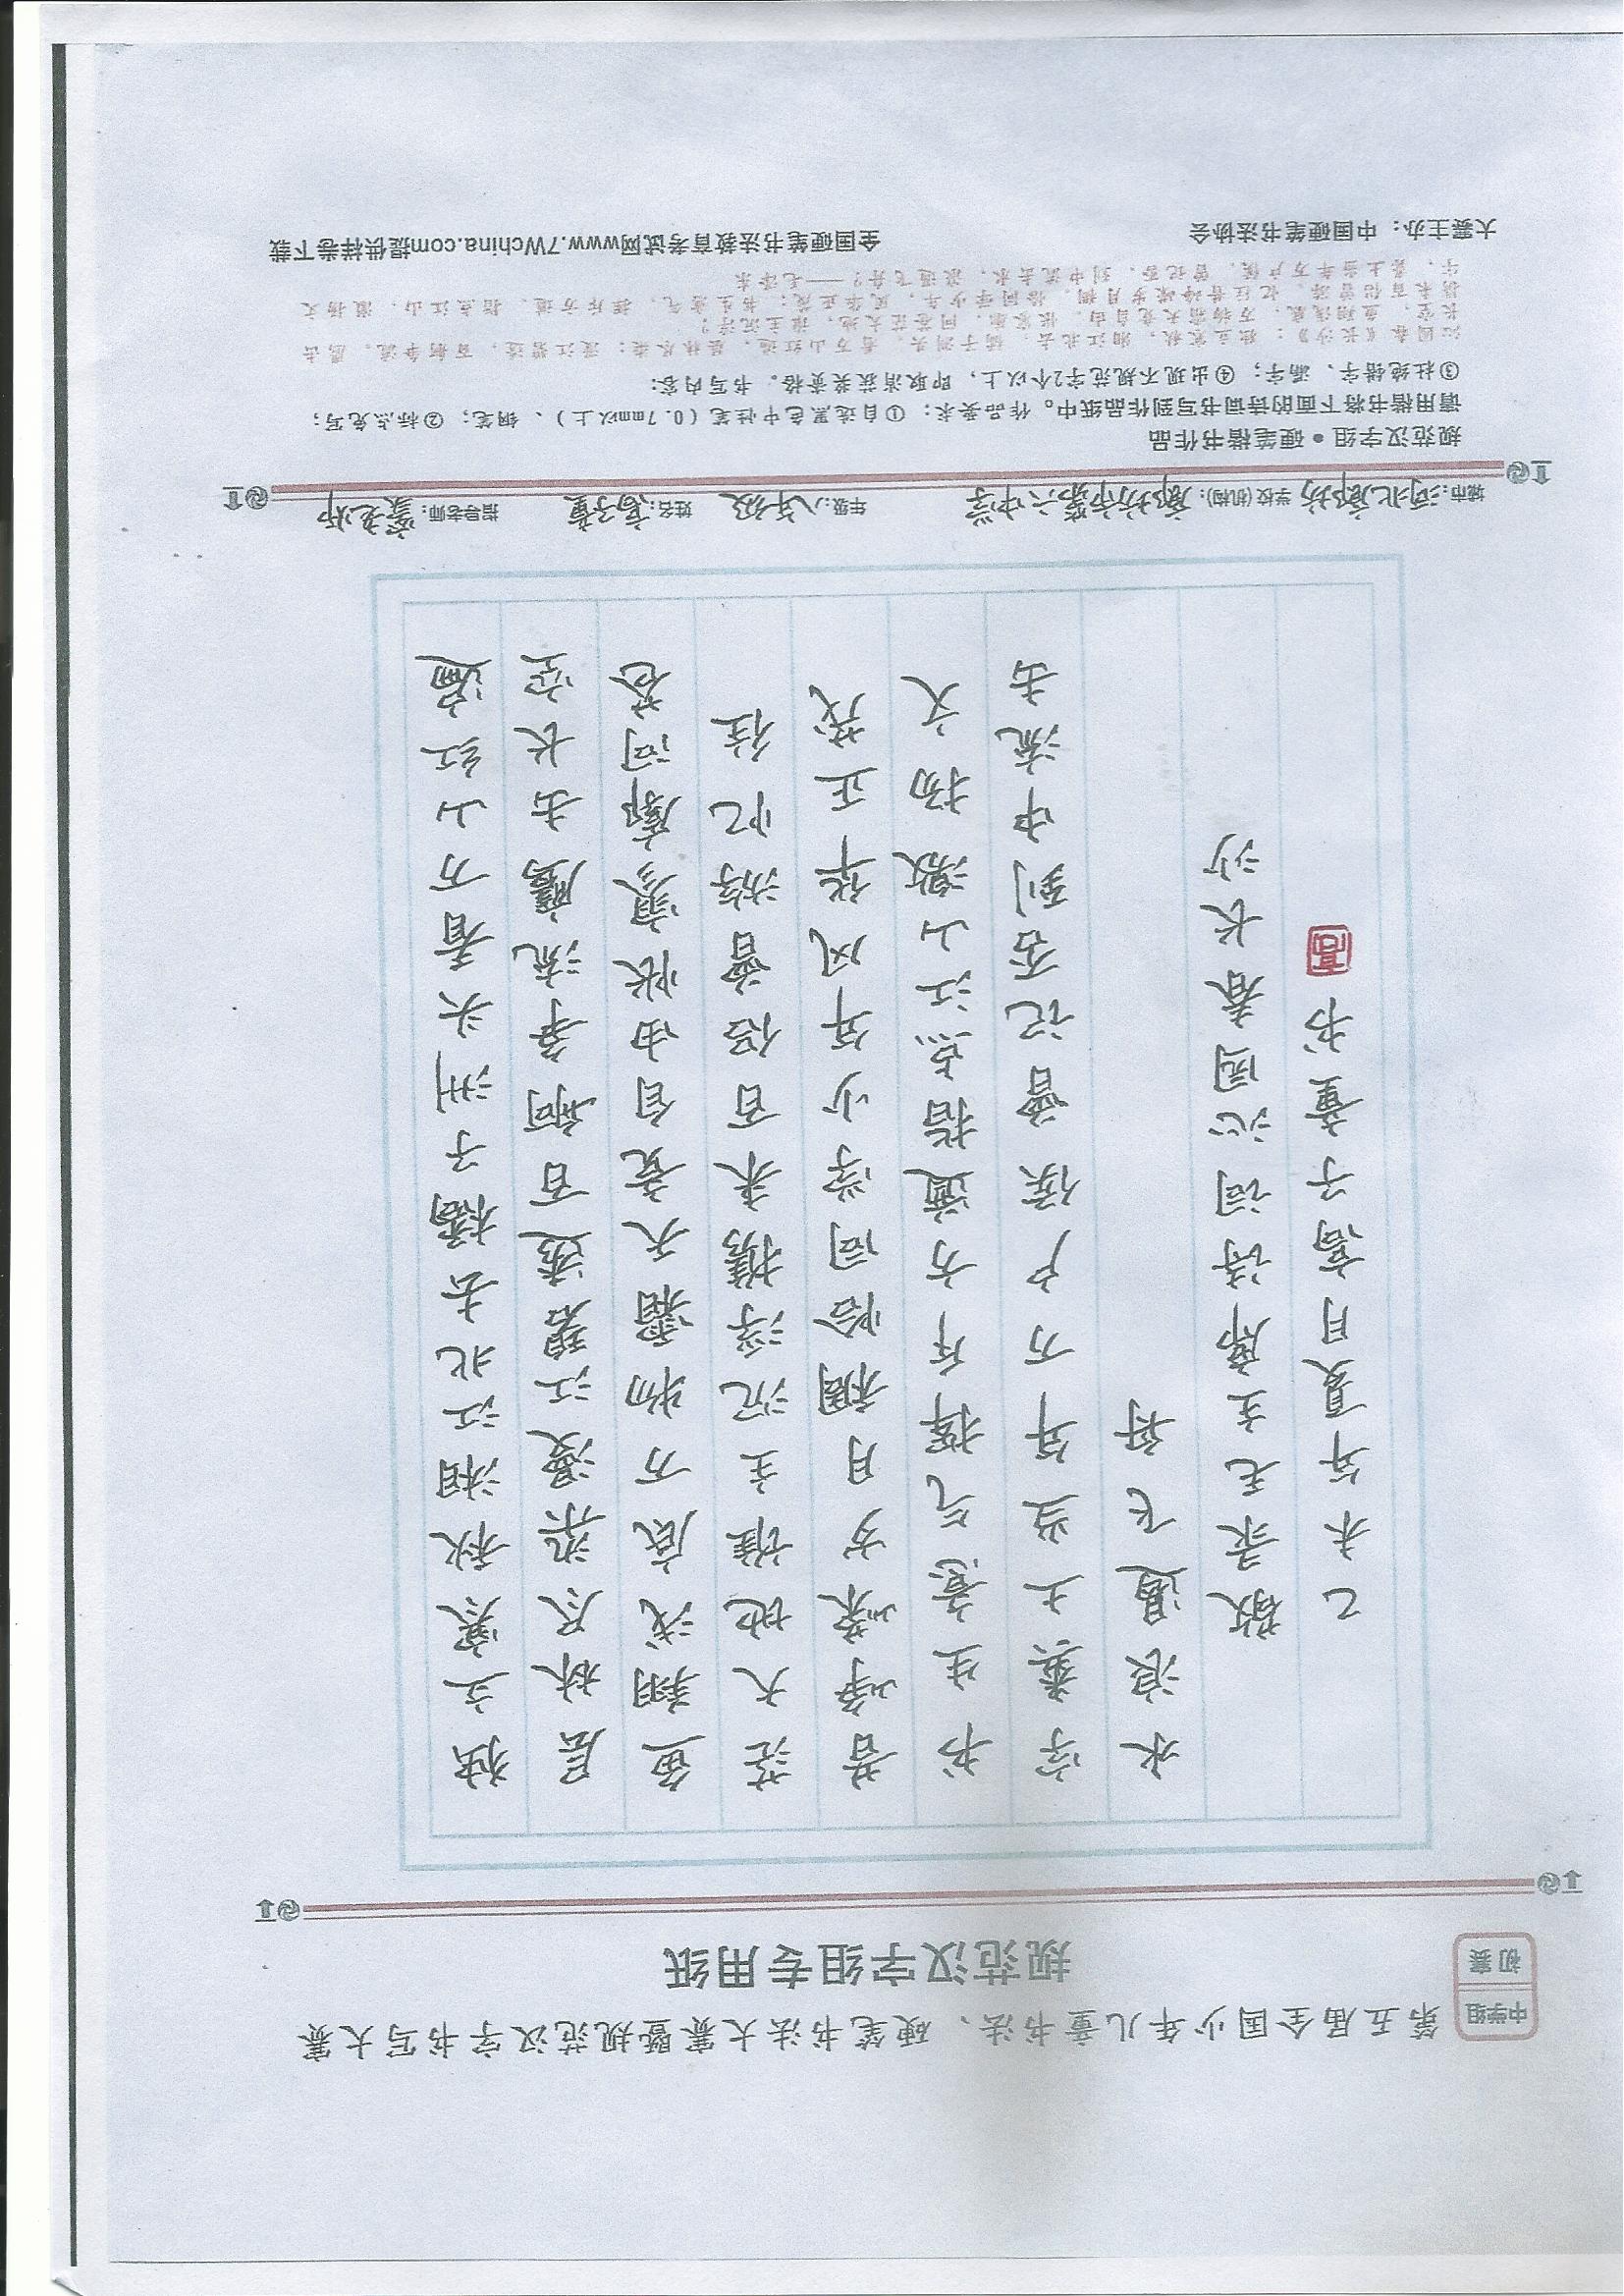 第五届全国少年儿童书法、硬笔书法大赛暨规范汉字书写大赛
中学组
初赛
规范汉字组专用纸
独立寒秋湘江北去橘子洲头看万山红遍
层林尽染漫江碧透百舸争流鹰击长空
鱼翔浅底万物霜天竞自由怅寥廓问苍
茫大地谁主沉浮携来百侣曾游忆往
昔峥嵘岁月稠恰同学少年风华正茂
书生意气挥斥方遒指点江山激扬文
字粪土当年万户侯曾记否到中流击
水浪遏飞舟
敬录毛主席诗词沁园春长沙
乙未年夏月高子童书
高
城市：河北廊坊 学校(机构)：廊坊市第六中学 年级：八年级 姓名：高子童 指导老师：老师
规范汉字组•硬笔楷书作品
请用楷书将下面的诗词书写到作品纸中。作品要求：①自选黑色中性笔（0.7mm以上）、钢笔；②标点免写；
③杜绝错字、漏字；④出现不规范字2个以上，即取消获奖资格。书写内容：
沁园春《长沙》：独立寒秋，湘江北去，橘子洲头。看万山红遍，层林尽染；漫江碧透，百舸争流。鹰击
长空，鱼翔浅底，万物霜天竞自由。怅寥廓，问苍茫大地，谁主沉浮？
携来百侣曾游。忆往昔峥嵘岁月稠。恰同学少年，风华正茂；书生意气，挥斥方遒。指点江山，激扬文
字，粪土当年万户侯。曾记否，到中流击水，浪遏飞舟？——毛泽东
大赛主办：中国硬笔书法协会 全国硬笔书法教育考试网www.7Wchina.com提供样卷下载